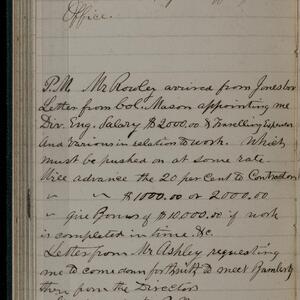 Office.
P.M. Mr Rowley arrived from Jonesboro
Letter from Col. Mason appointing me
Div. Eng. Salary $2000.00 & Travelling Expenses
And Various in relation to work. Which
must be pushed on at some rate.
Will advance the 20 per Cent to Contractors
" " $1000.00 or 2000.00
" Give Bonus of $10.000.00 if work
is completed in time. &c.
Letter from Mr Ashley requesting
me to come down forthwith to meet
them from the Directors